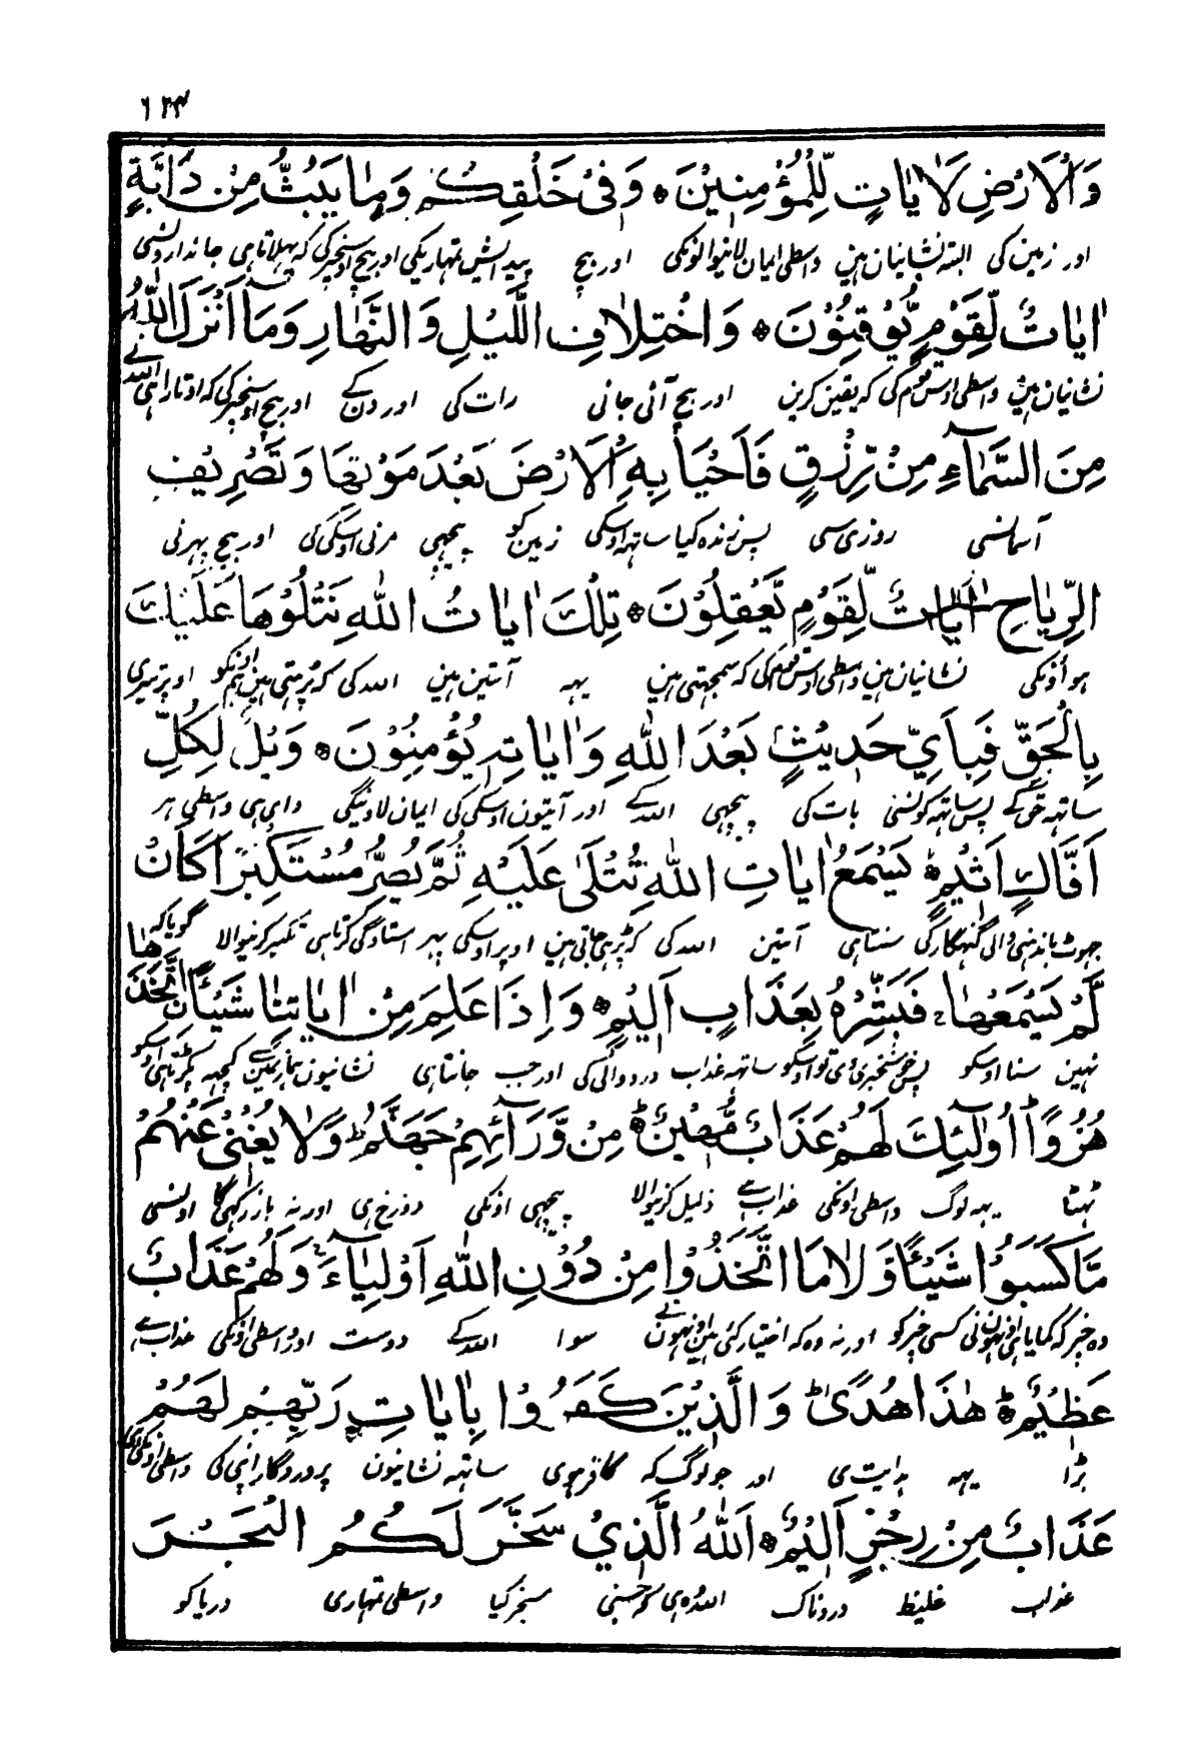 ٦٢٤
وَالْاَرْضِ لَاٰيَاتٍ لِّلْمُؤْمِنِيْنَ ۞ وَفِىْ خَلْقِكُمْ وَمَا يَبُثُّ مِنْ دَآبَّةٍ
اور زمین کی البتہ نشانیان ہین واسطی ایمان لانیوالونکی اور بیچ پیدایش تمہاریکی اور بیچ اوسچیز کی کہ پہلاتا ہی جاندارونسی
اٰيَاتٌ لِّقَوْمٍ يُّوْقِنُوْنَ ۞ وَاخْتِلَافِ اللَّيْلِ وَالنَّهَارِ وَمَا اَنْزَلَ اللّٰهُ
نشانیان ہین واسطی اوس قوم کی کہ یقین کرین اور بیچ آئی جانی رات کی اور دن کے اور بیچ اوسچیز کی کہ اوتارا ہی اللہ نے
مِنَ السَّمَآءِ مِنْ رِّزْقٍ فَاَحْيَا بِهِ الْاَرْضَ بَعْدَ مَوْتِهَا وَتَصْرِيْفِ
آسمانسی روزی سی پس زندہ کیا ساتہہ اوسکی زمین کو پیچہی مرنی اوسکی کی اور بیچ پہرنی
الرِّيَاحِ اٰيَاتٌ لِّقَوْمٍ يَّعْقِلُوْنَ ۞ تِلْكَ اٰيَاتُ اللّٰهِ نَتْلُوْهَا عَلَيْكَ
ہواؤنکی نشانیان ہین واسطی اوس قوم کی کہ سمجہتی ہین یہہ آیتین ہین اللہ کی کہ پڑہتی ہین ہم اونکو اوپر تیری
بِالْحَقِّ فَبِاَيِّ حَدِيْثٍ بَعْدَ اللّٰهِ وَاٰيَاتِهٖ يُؤْمِنُوْنَ ۞ وَيْلٌ لِكُلِّ
ساتہہ حق کے پس ساتہہ کونسی بات کی پیچہی اللہ کے اور آیتون اوسکی کی ایمان لاوینگی وای ہی واسطی ہر
اَفَّاكٍ اَثِيْمٍ يَسْمَعُ اٰيَاتِ اللّٰهِ تُتْلٰى عَلَيْهِ ثُمَّ يُصِرُّ مُسْتَكْبِرًا كَاَنْ
جہوٹ باندہنی والی گنہگار کی سنتا ہی آیتین اللہ کی کہ پڑہی جاتی ہین اوپر اوسکی پہر استادگی کرتا ہی تکبر کرنیوالا گویا کہ
لَّمْ يَسْمَعْهَا فَبَشِّرْهُ بِعَذَابٍ اَلِيْمٍ ۞ وَاِذَا عَلِمَ مِنْ اٰيَاتِنَا شَيْئًا اتَّخَذَهَا
نہین سنا اوسکو پس خوشخبری دی تو اوسکو ساتہہ عذاب درد والی کی اور جب جانتا ہی نشانیون ہماریمین سے کچہہ پکڑتا ہی اوسکو
هُزُوًا اُولٰٓئِكَ لَهُمْ عَذَابٌ مُّهِيْنٌ مِنْ وَّرَآئِهِمْ جَهَنَّمُ وَلَا يُغْنِيْ عَنْهُمْ
ٹہٹا یہہ لوگ واسطی اونکی عذاب ہے ذلیل کرنیوالا پیچہی اونکی دوزخ ہی اور نہ باز رکہی گا اونسی
مَّا كَسَبُوْا شَيْئًا وَّلَا مَا اتَّخَذُوْا مِنْ دُوْنِ اللّٰهِ اَوْلِيَآءَ وَلَهُمْ عَذَابٌ
وہ چیز کہ کمایا ہی اونہون نی کسی چیز کو اور نہ وہ کہ اختیار کئی ہین اونہون نے سوا اللہ کے دوست اور واسطی اونکی عذاب ہے
عَظِيْمٌ هٰذَا هُدًى وَالَّذِيْنَ كَفَرُوْا بِاٰيَاتِ رَبِّهِمْ لَهُمْ
بڑا یہہ ہدایت ہی اور جو لوگ کہ کافر ہوی ساتہہ نشانیون پروردگار اپنی کی واسطی اونکی ہی
عَذَابٌ مِنْ رِجْزٍ اَلِيْمٌ ۞ اَللّٰهُ الَّذِيْ سَخَّرَ لَكُمُ الْبَحْرَ
عذاب غلیظ دردناک اللہ وہ ہی جسنی مسخر کیا واسطی تمہاری دریا کو